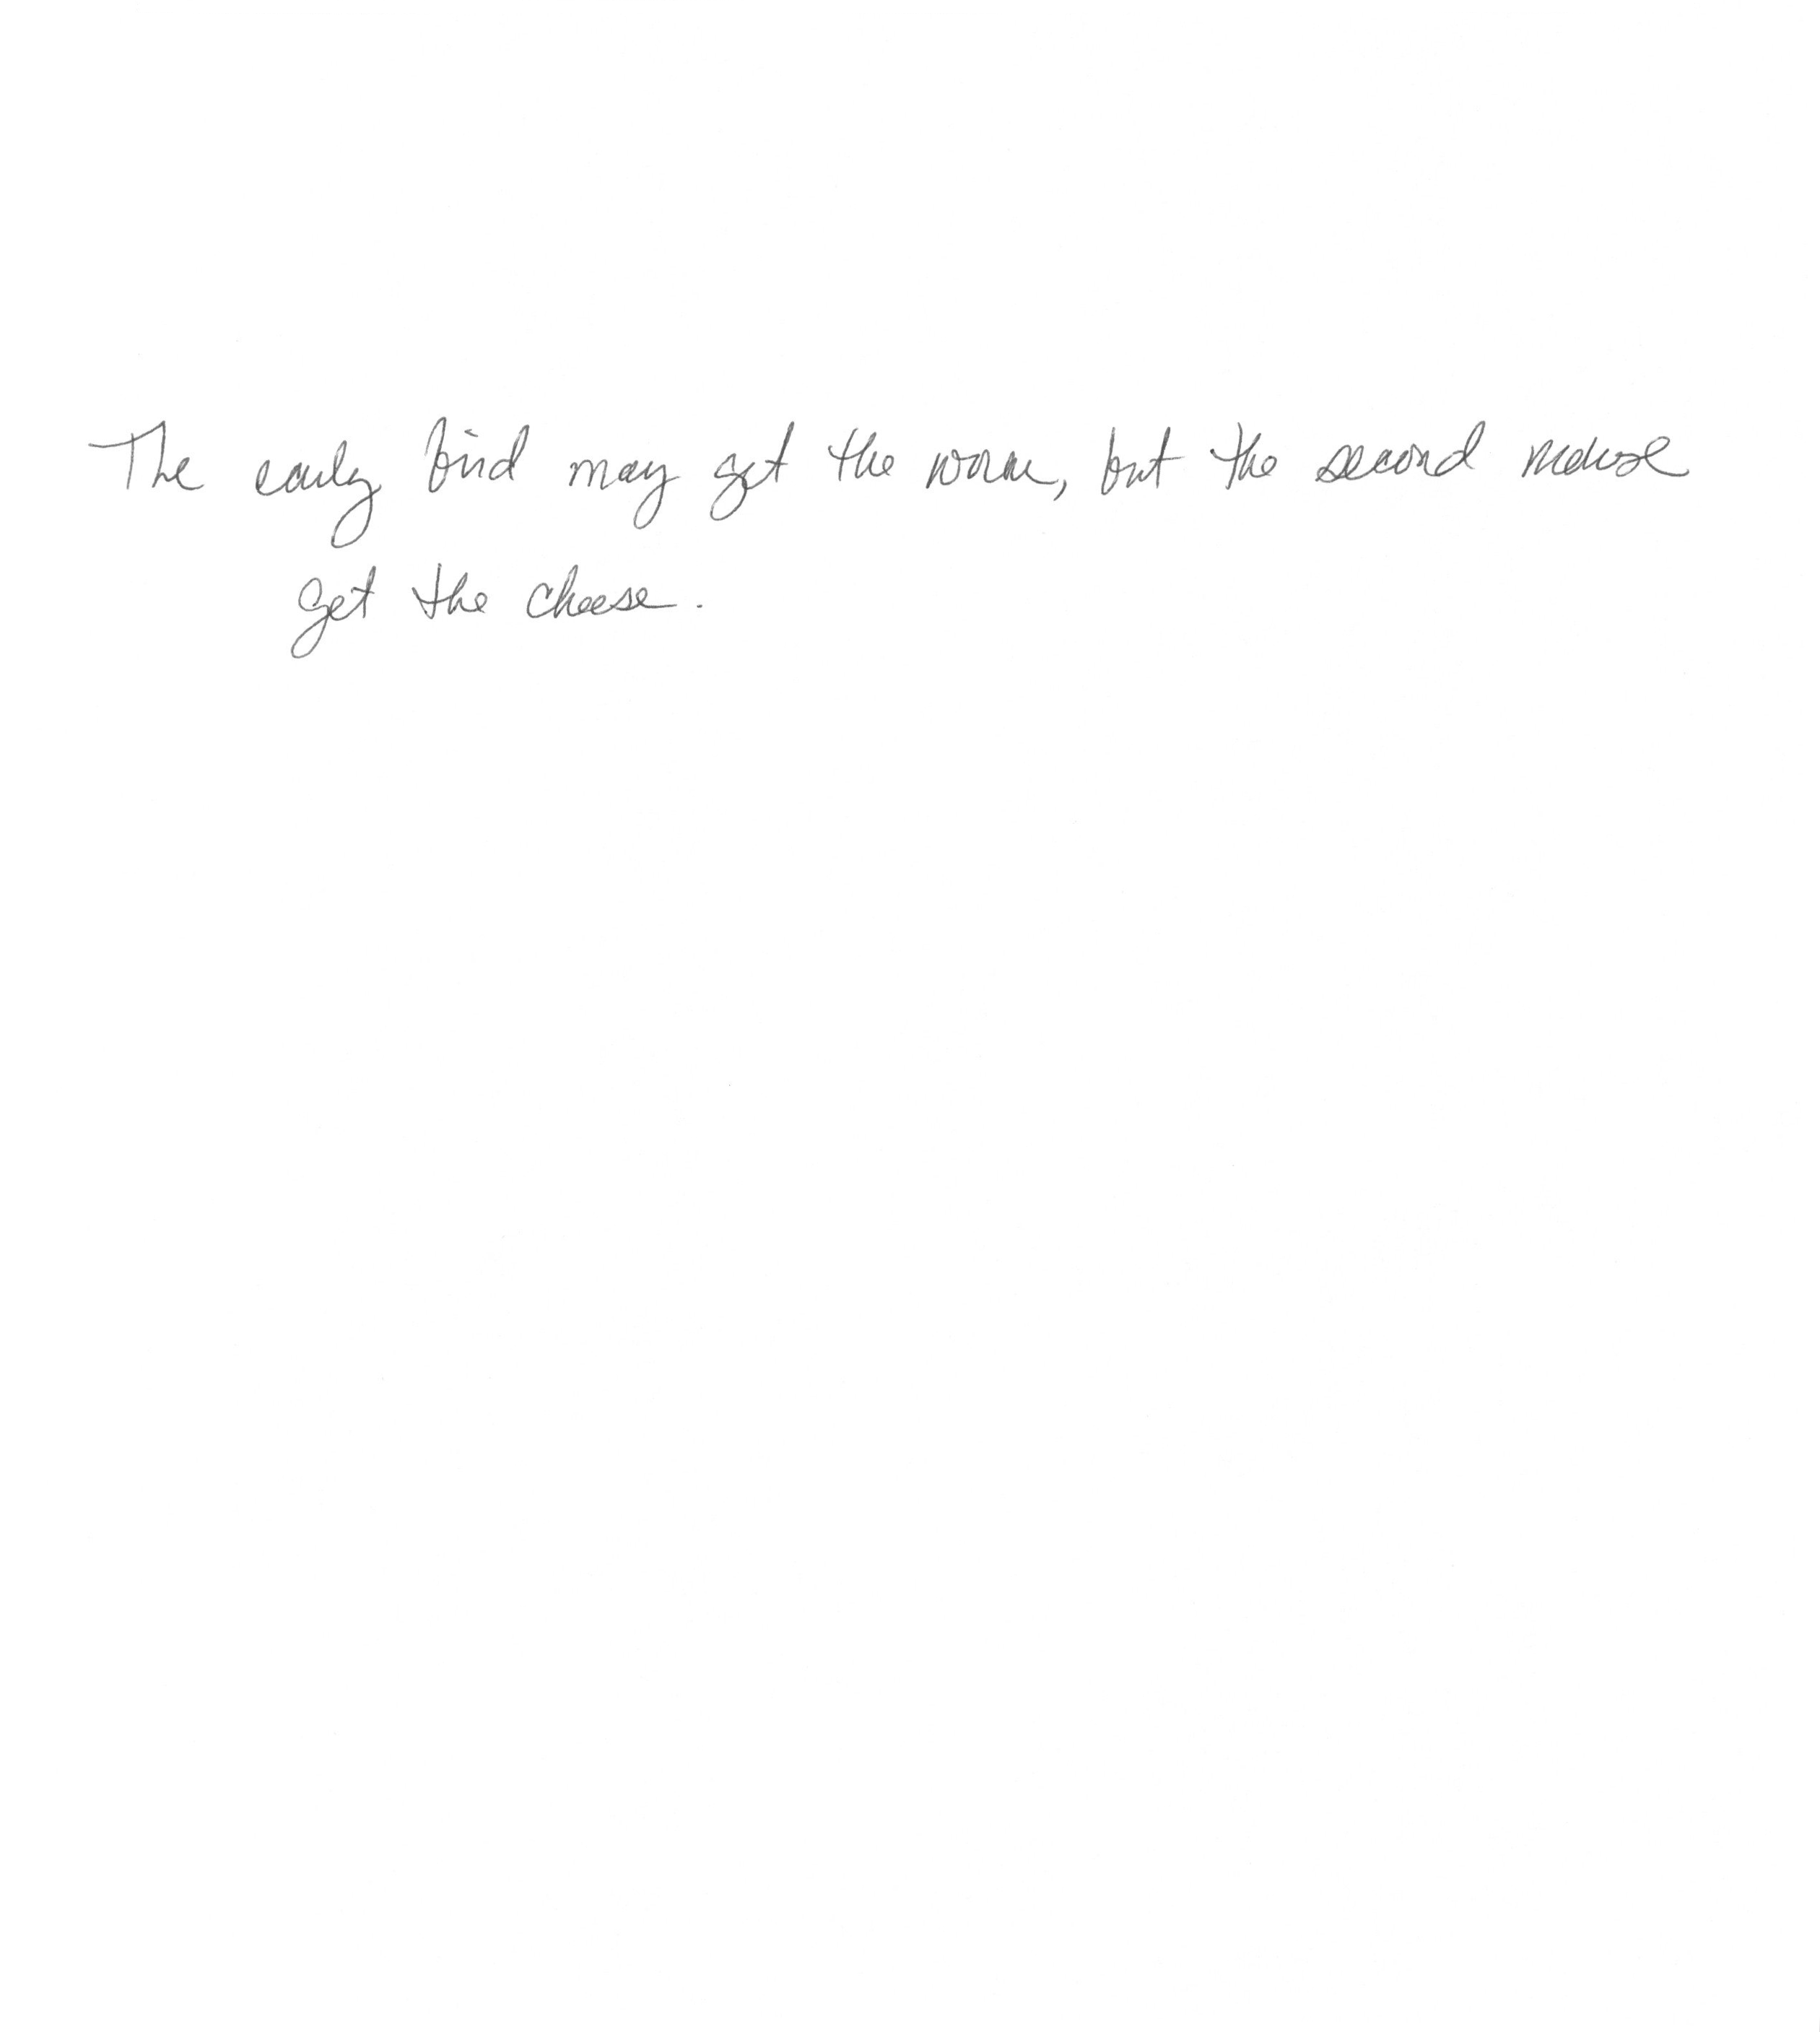 The early bird may get the worm, but the second mouse
get the cheese.